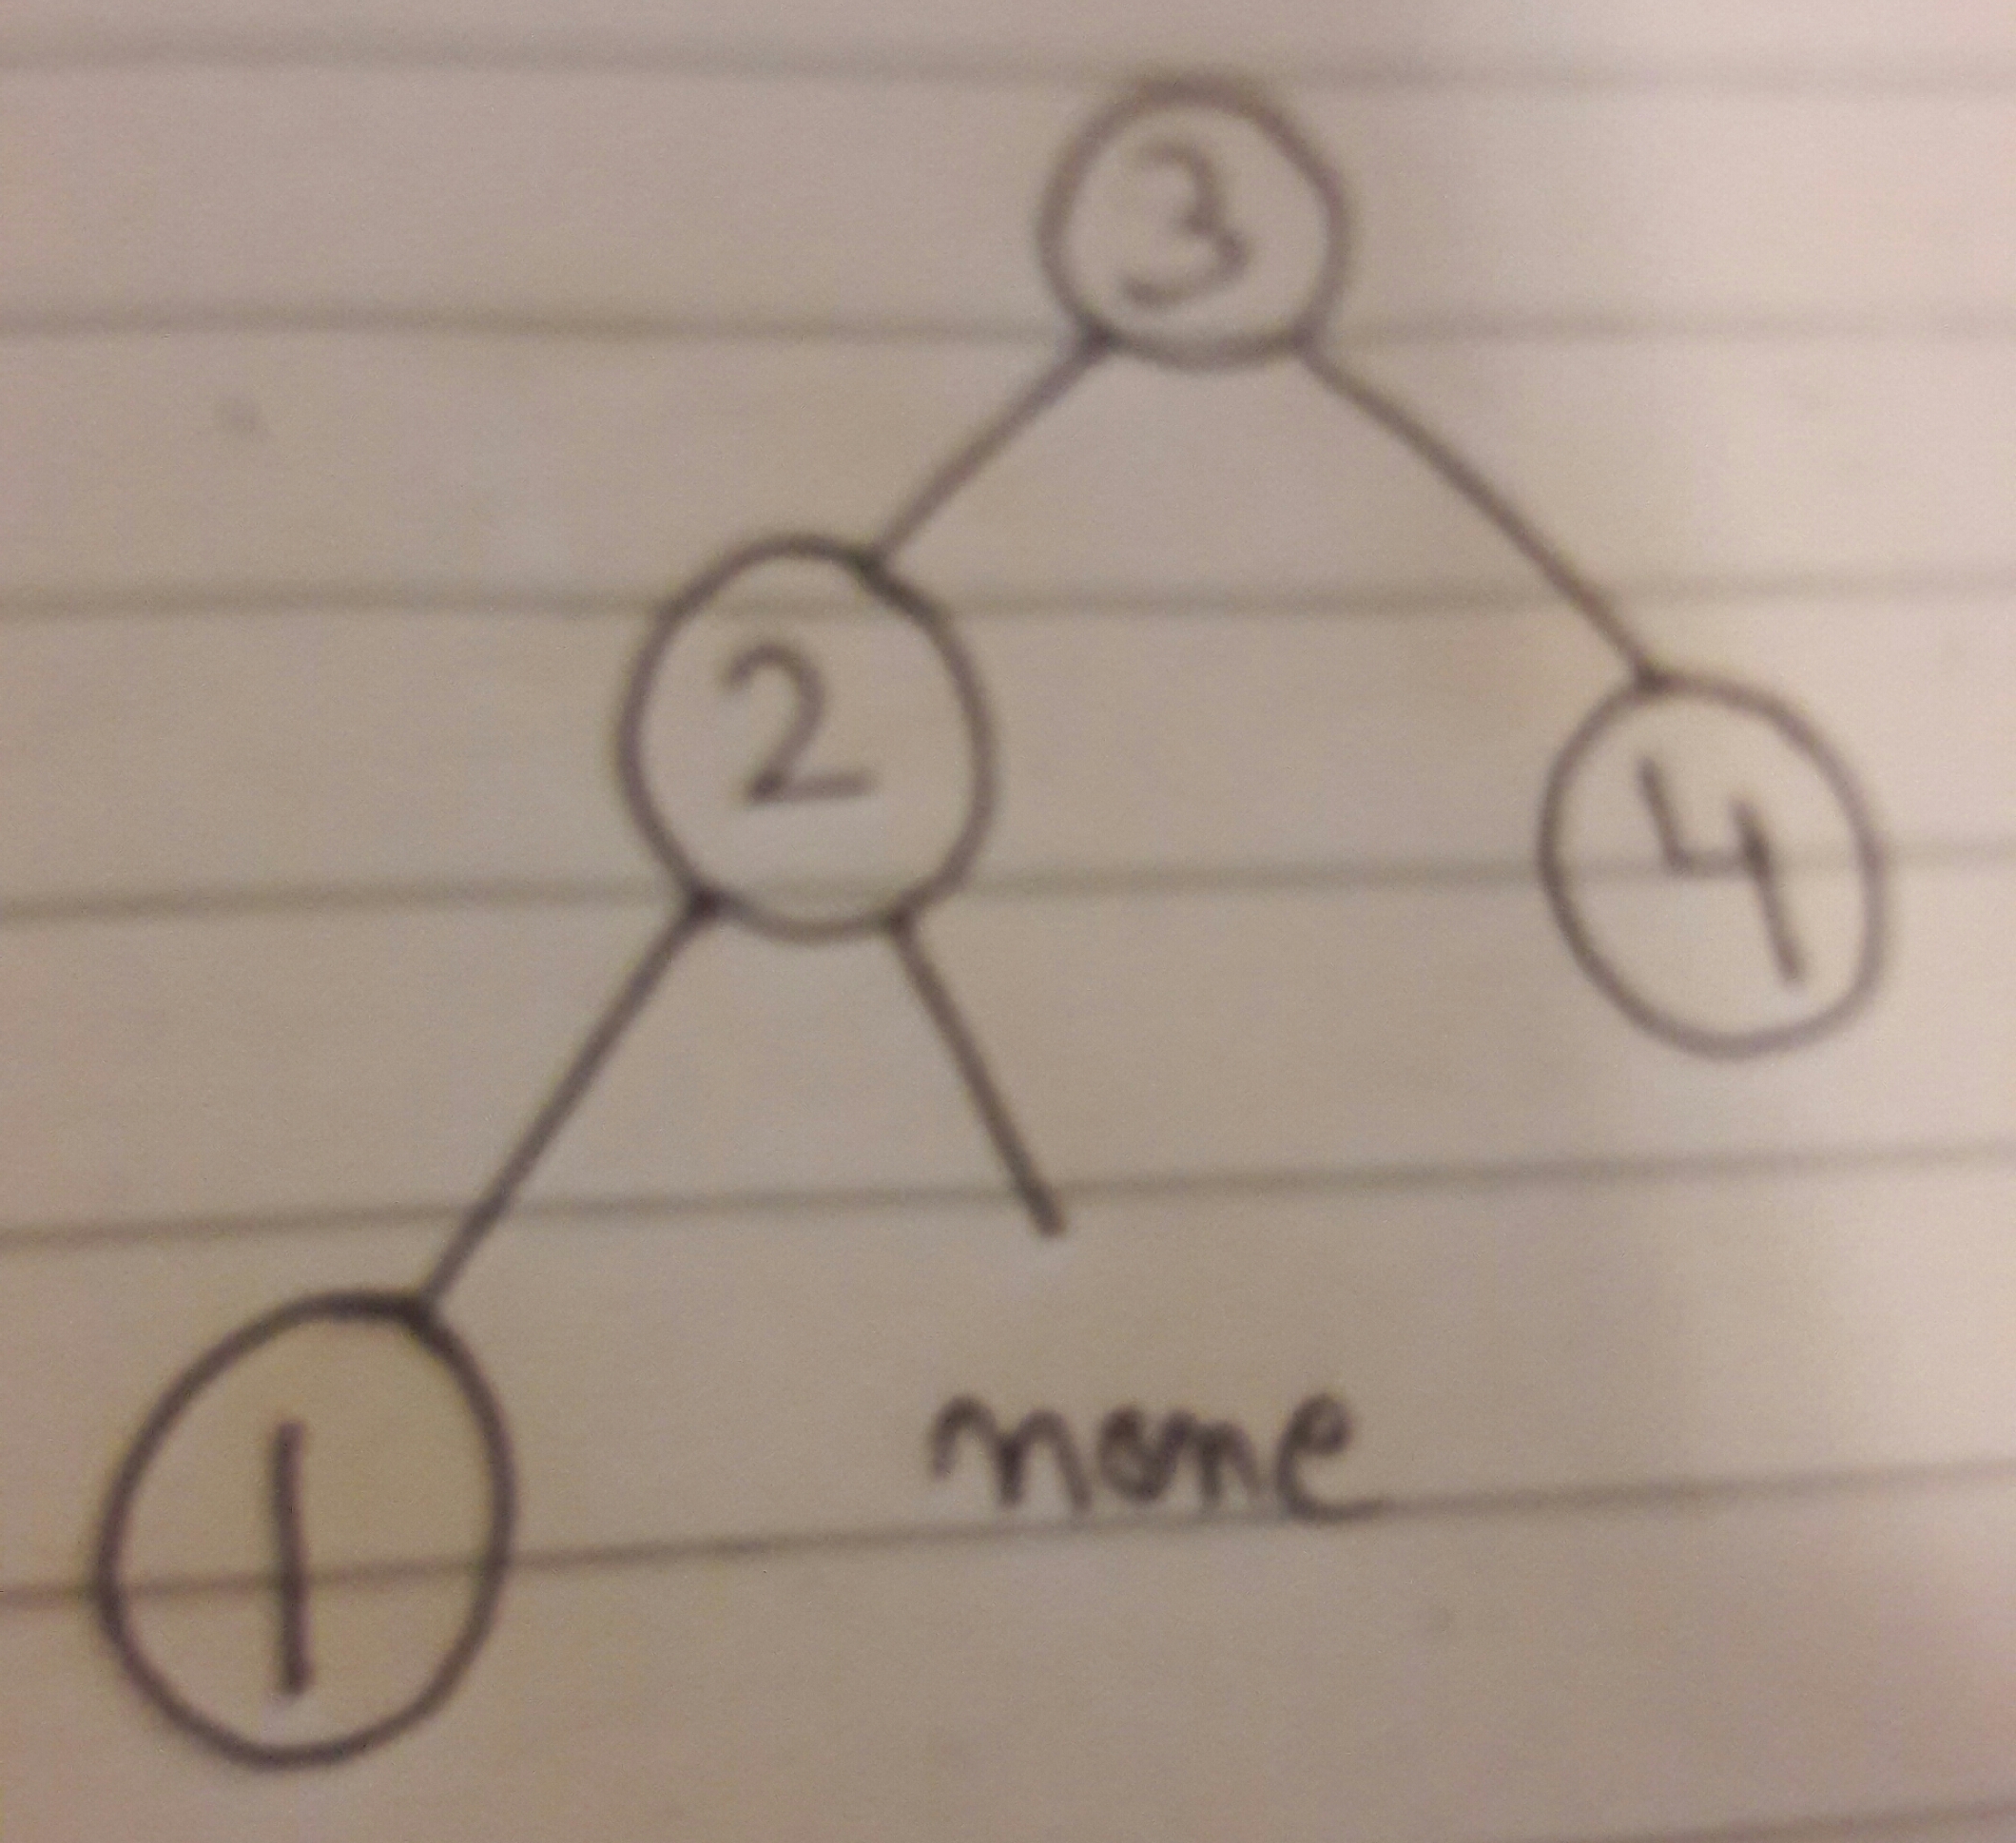 3
2
4
1
none